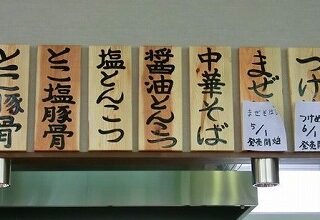 つけ
つけめ
6/1
発売開始
まぜ
まぜそば
5/1
発売開始
中華そば
醤油とんこつ
塩とんこつ
とこ塩豚骨
とこ豚骨